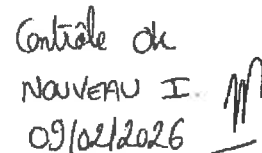 Contrôle ok
NOUVEAU I.
09/02/2026